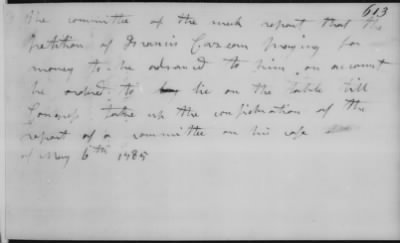 613
The committee of the week report that the
petition of Francis Cazeau praying for
money to be advanced to him on account
be ordered to lie on the table till
Congress take up the consideration of the
report of a committee on his case
of May 6th 1785